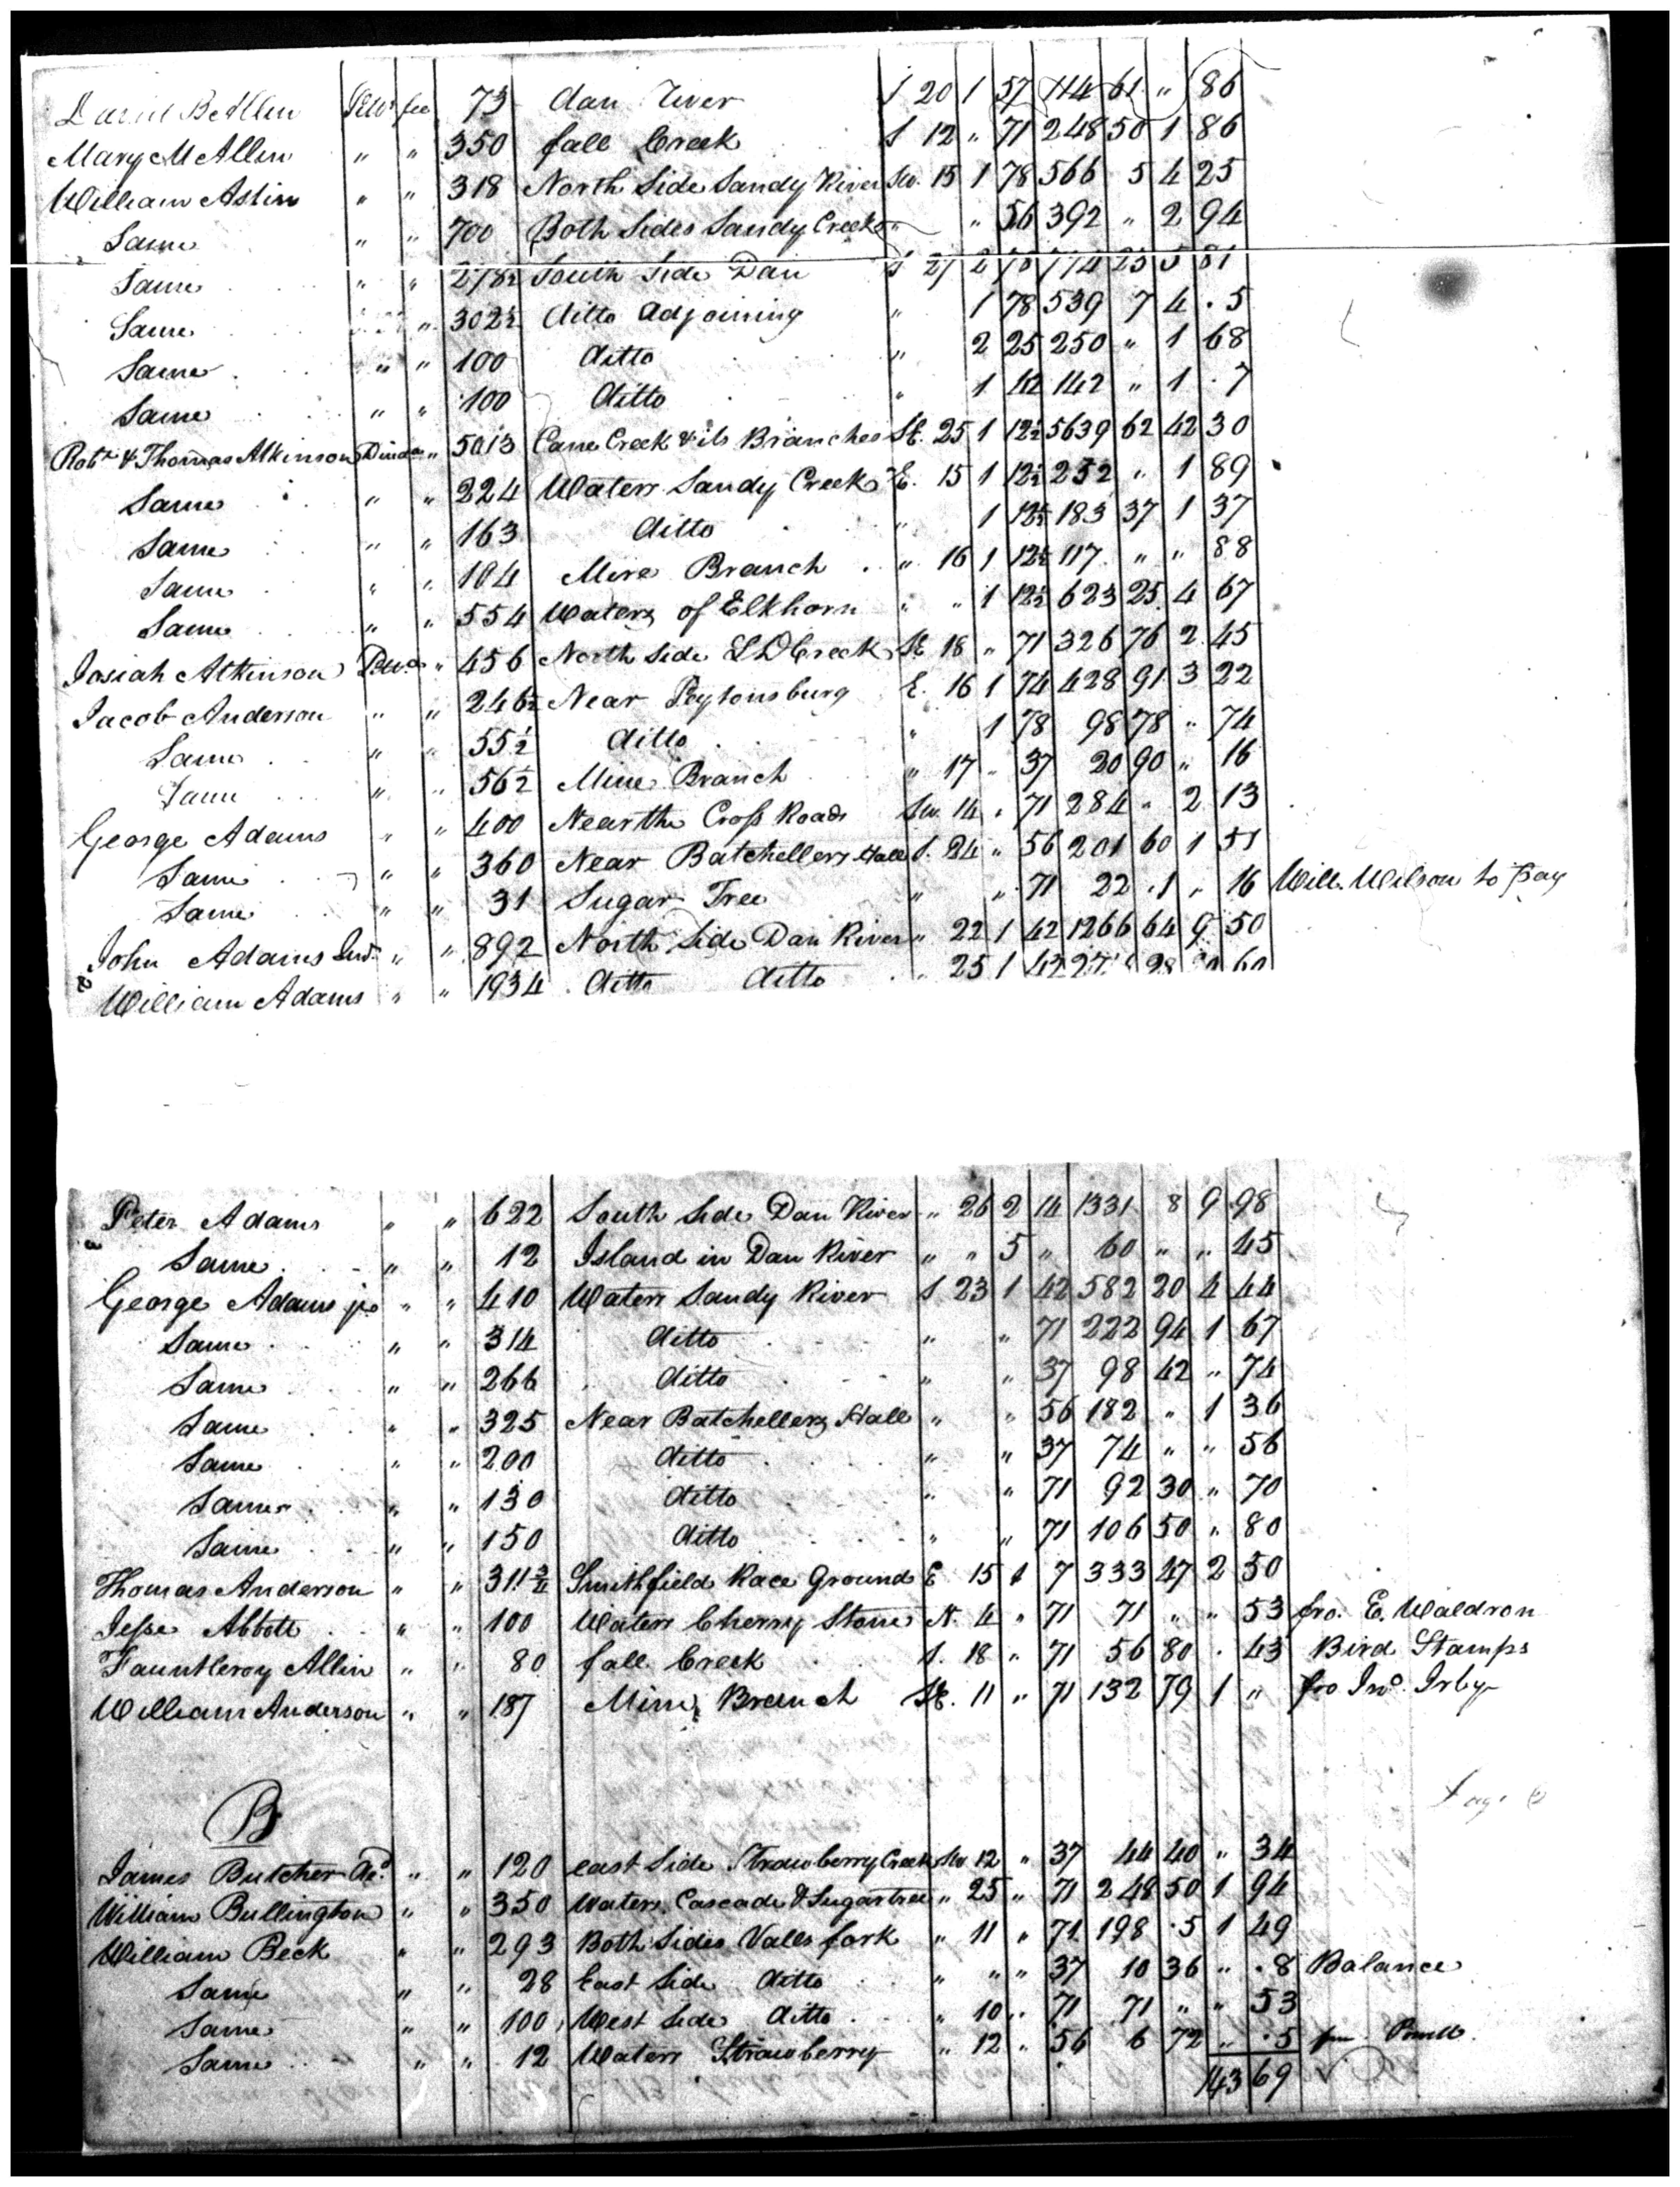 David B Allen Pitts. fee 73 dan River S 20 1 57 114 61 " 86
Mary M Allen " " 350 fall Creek S 12 " 71 248 50 1 86
William Astin " " 318 North Side Sandy River Sw. 15 1 78 566 5 4 25
Same " " 700 Both Sides Sandy Creek " " 56 392 " 2 94
Same " " 278½ South Side Dan S 27 2 78 774 23 5 81
Same " " 302½ ditto Adjoining " 1 78 539 7 4 . 5
Same " " 100 ditto " 2 25 250 " 1 68
Same " " 100 ditto " 1 42 142 " 1 . 7
Robt & Thomas Atkinson Dinda " 5013 Cane Creek & its Branches SE. 25 1 12½ 5639 62 42 30
Same " " 224 Waters Sandy Creek E. 15 1 12½ 252 " 1 89
Same " " 163 ditto " 1 12½ 183 37 1 37
Same " " 104 Mire Branch " 16 1 12½ 117 " " 88
Same " " 554 Waters of Elkhorn " " 1 12½ 623 25 4 67
Josiah Atkinson " 456 North Side S D Creek SE 18 " 71 326 76 2 45
Jacob Anderson " " 246½ Near Peytonsburg E. 16 1 74 428 91 3 22
Same " " 55½ ditto " 1 78 98 78 " 74
Same " " 56½ Mine Branch " 17 " 37 20 90 " 16
George Adams " " 400 Near the Cross Roads Sw. 14 " 71 284 " 2 13
Same " " 360 Near Batchellers Hall S. 24 " 56 201 60 1 51
Same " " 31 Sugar Tree " " 71 22 .1 " 16 Will. Wilson to pay
John Adams " " 892 North Side Dan River " 22 1 42 1266 64 9 50
William Adams " " 1934 ditto ditto " 25 1 42 28 60
Peter Adams " " 622 South Side Dan River " 26 2 14 1331 8 9 98
Same " " 12 Island in Dan River " " 5 " 60 " " 45
George Adams jr " " 410 Waters Sandy River S 23 1 42 582 20 4 44
Same " " 314 ditto " " 71 222 94 1 67
Same " " 266 ditto " " 37 98 42 " 74
Same " " 325 Near Batchellers Hall " " 56 182 " 1 36
Same " " 200 ditto " " 37 74 " " 56
Same " " 130 ditto " " 71 92 30 " 70
Same " " 150 ditto " " 71 106 50 " 80
Thomas Anderson " " 311¾ Smithfield Race Ground E 15 1 7 333 47 2 50
Jesse Abbott " " 100 Waters Cherry Stone N. 4 " 71 71 " " 53 fro. E. Waldron
Fauntleroy Allin " " 80 fall Creek S. 18 " 71 56 80 . 43 Bird Stamps
William Anderson " " 187 Mine Branch SE. 11 " 71 132 79 1 " fro Jno. Irby
B
James Butcher " " 120 east Side Strawberry Creek Sw 12 " 37 44 40 " 34
William Bullington " " 350 Waters Cascade & Sugartree " 25 " 71 248 50 1 94
William Beck " " 293 Both Sides Valls fork " 11 " 71 198 .5 1 49
Same " " 28 East Side ditto " " " 37 10 36 " .8 Balance
Same " " 100 West Side ditto " 10 " 71 71 " " 53
Same " " 12 Waters Strawberry " 12 " 56 6 72 " .5 Powell
143 69